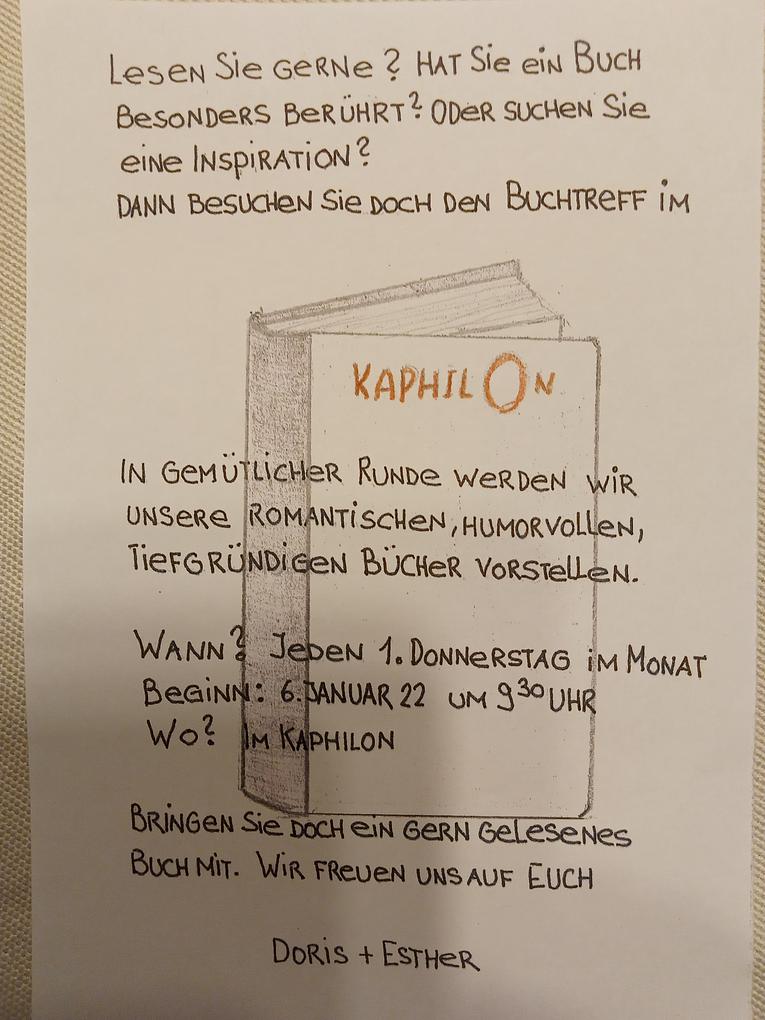 Lesen Sie gerne? Hat Sie ein Buch
besonders berührt? Oder suchen Sie
eine Inspiration?
Dann besuchen Sie doch den Buchtreff im
KAPHILON
In gemütlicher Runde werden wir
unsere romantischen, humorvollen,
tiefgründigen Bücher vorstellen.
Wann? Jeden 1. Donnerstag im Monat
Beginn: 6. Januar 22 um 9³⁰ Uhr
Wo? Im Kaphilon
Bringen Sie doch ein gern gelesenes
Buch mit. Wir freuen uns auf Euch
Doris + Esther